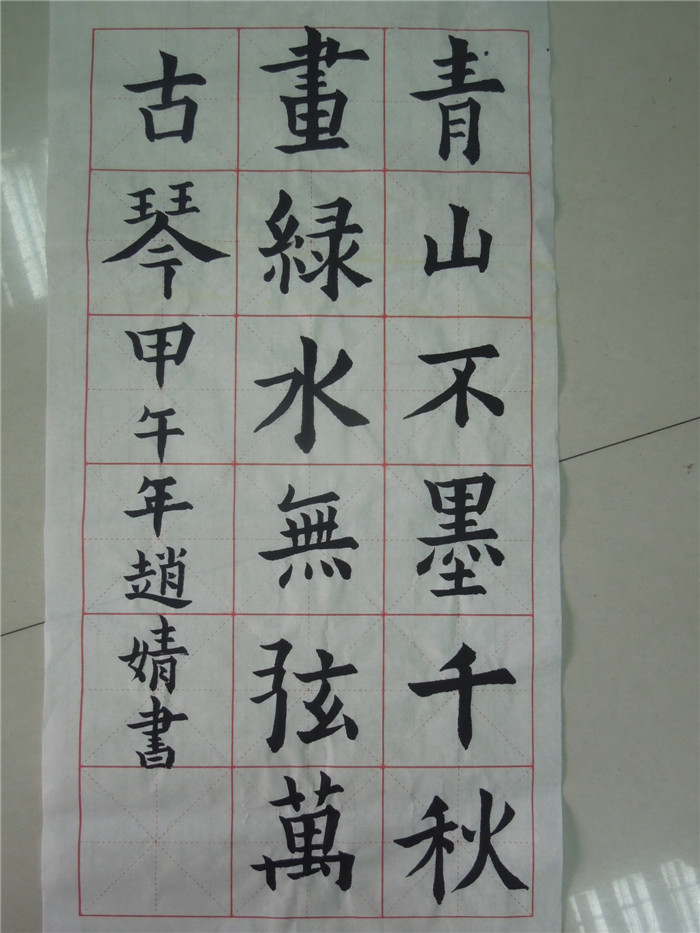 青山不墨千秋
畫緑水無弦萬
古琴甲午年趙婧書